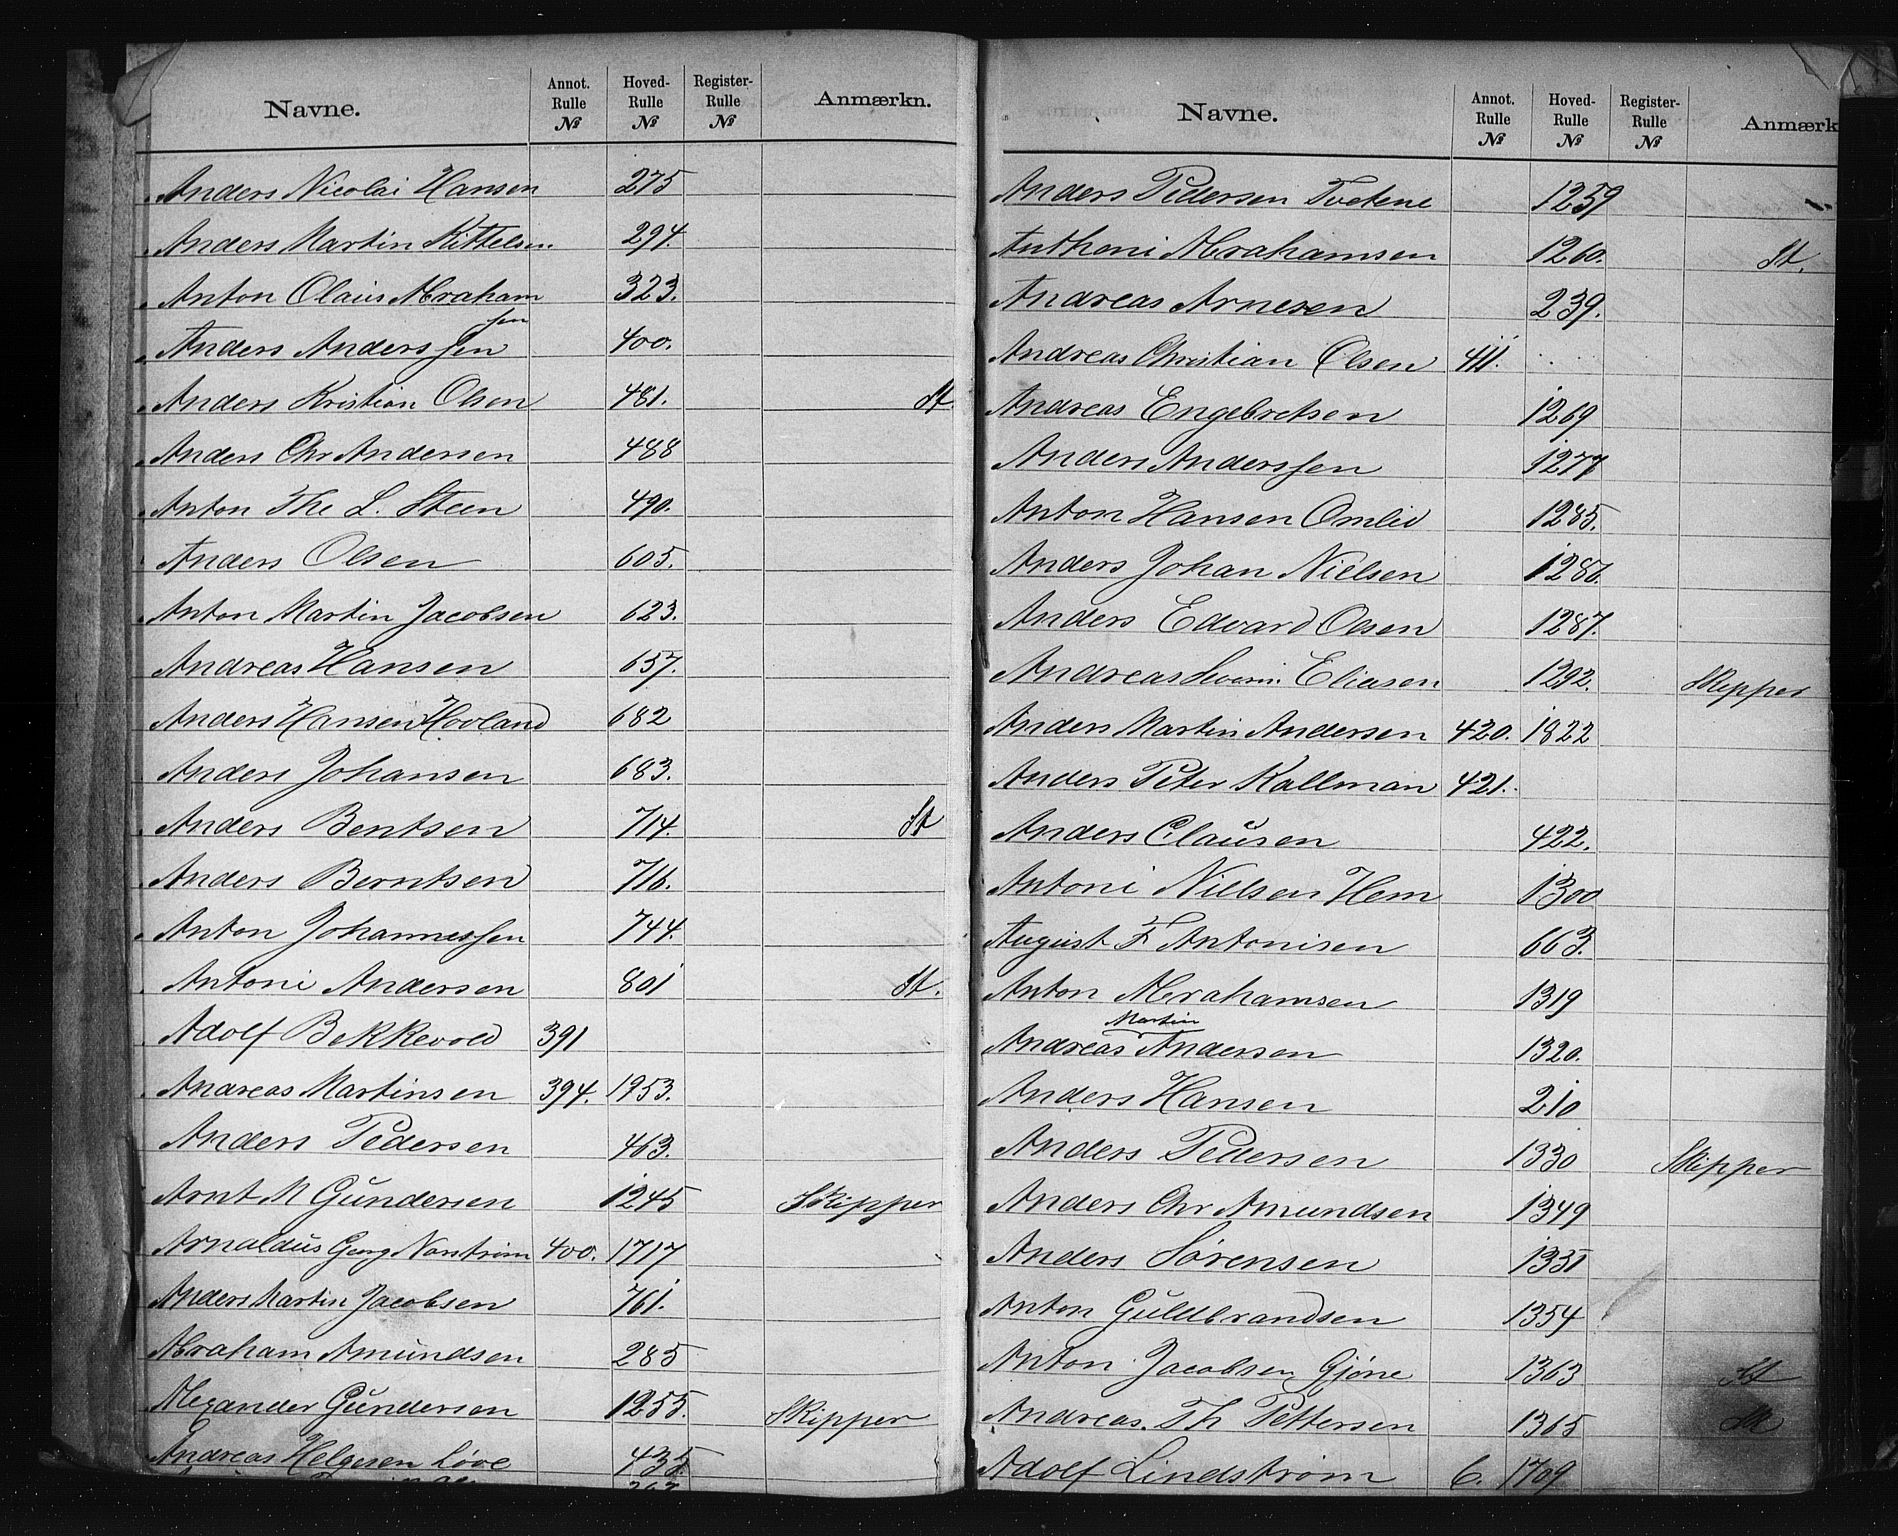 Navne. Annot. Rulle № Hoved- Rulle № Register- Rulle № Anmærkn.
Anders Nicolai Hansen 275
Anders Martin Kittelsen 294.
Anton Olaus Abraham 323.
sen
Anders Anderssen 400.
Anders Kristian Olsen 481. St.
Anders Chr Andersen 488
Anton The L. Steen 490.
Anders Olsen 605.
Anton Martin Jacobsen 623.
Andreas Hansen 657.
Anders Hansen Hovland 682
Anders Johansen 683.
Anders Bentsen 714. St
Anders Berntsen 716.
Anton Johannessen 744.
Antoni Andersen 801 St.
Adolf Bekkevold 391
Andreas Martinsen 394. 1753.
Anders Pedersen 463.
Arnt M Gundersen 1245 Skipper
Arnoldus Georg Norström 400. 1717
Anders Martin Jacobsen 761.
Abraham Amundsen 285
Alexander Gundersen 1255. Skipper
Andreas Helgesen Löve 435
Navne. Annot. Rulle № Hoved- Rulle № Register- Rulle № Anmærk
Anders Pedersen Tvetene 1259
Anthoni Abrahamsen 1260. St.
Andreas Arnesen 239.
Andreas Christian Olsen 411.
Andreas Engebretsen 1269
Anders Anderssen 1277
Anton Hansen Omlid 1285.
Anders Johan Nielsen 1286.
Anders Edvard Olsen 1287.
Andreas Severin Eliasen 1292. Skipper
Anders Martin Andersen 420. 1822
Anders Peter Kallman 421.
Anders Clausen 422.
Antoni Nielsen Hem 1300
August F Antonisen 663.
Anton Abrahamsen 1319
Martin
Andreas Andersen 1320.
Anders Hansen 210
Anders Pedersen 1330 Skipper
Anders Chr Amundsen 1349
Anders Sörensen 1351
Anton Guldbrandsen 1354
Anton Jacobsen Gjöne 1363 St
Andreas. Th Pettersen 1365 St
Adolf Lindström 6. 1709